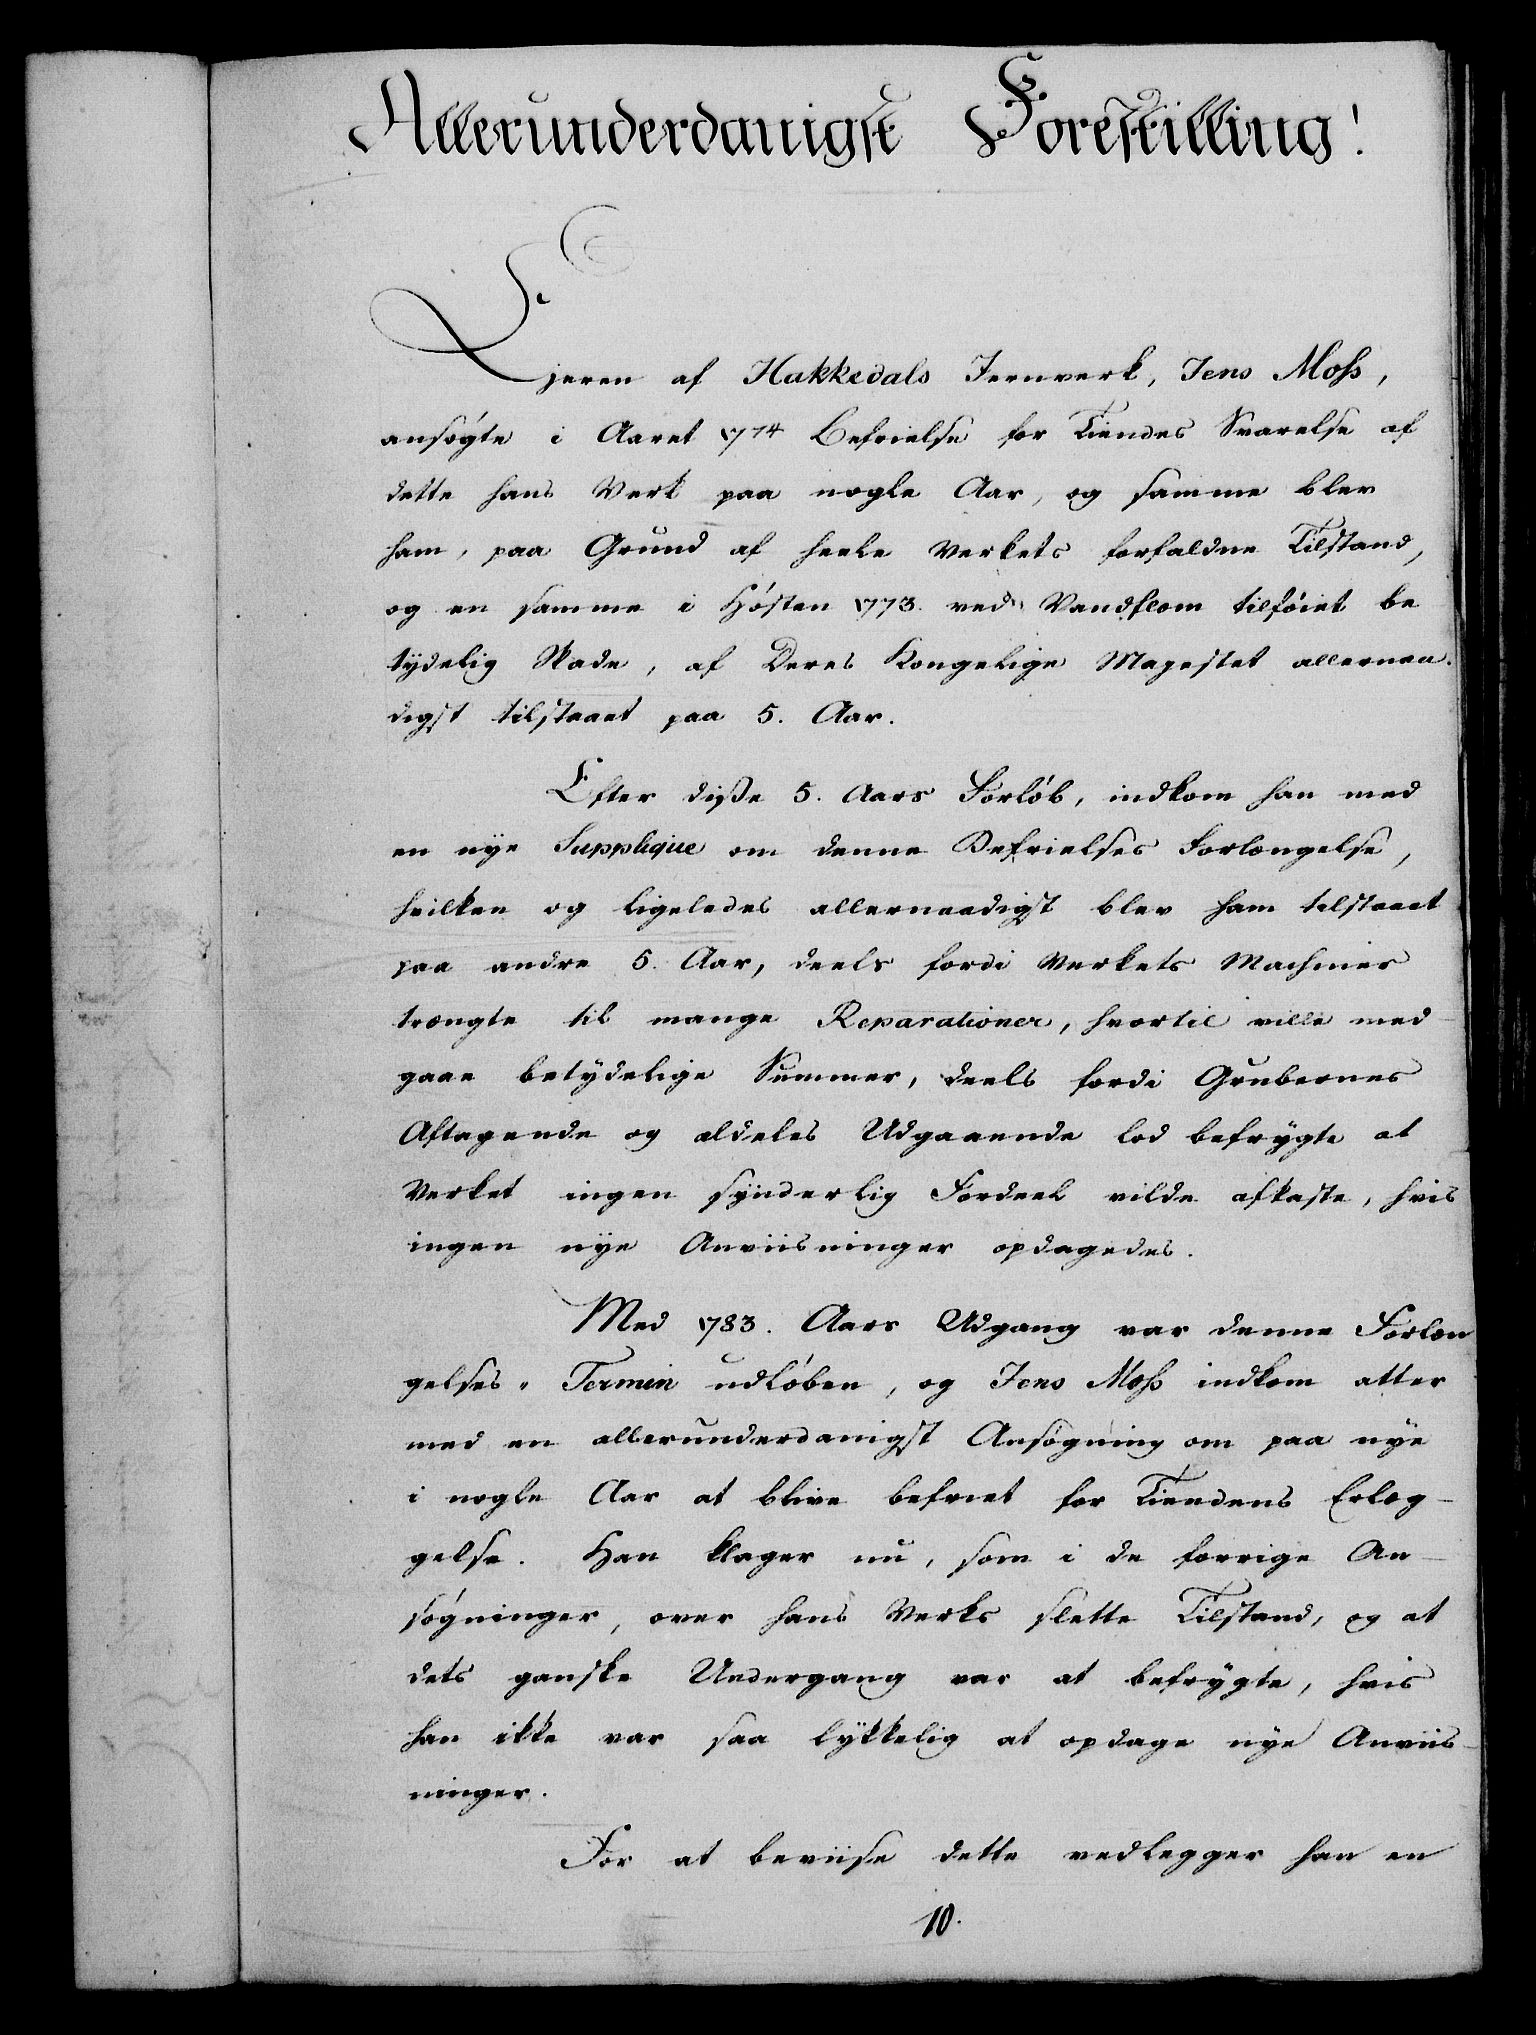 Allerunderdanigst Forestilling!
Ejeren af Hakkedals Jernverk, Jens Moss,
ansøgte i Aaret 1774 Befrielse for Tiendes Svarelse af
dette hans Verk paa nogle Aar, og samme blev
ham, paa Grund af heele Verkets forfaldne Tilstand,
og en samme i Høsten 1773. ved Vandflom tilføiet be
tydelig Skade, af Deres Kongelige Majestet allernaa-
digst tilstaaet paa 5. Aar.
Efter disse 5. Aars Forløb, indkom han med
en nye Supplique om denne Befrielses Forlængelse,
hvilken og ligeledes allernaadigst blev ham tilstaaet
paa andre 5. Aar, deels fordi Verkets Machiner
trængte til mange Reparationer, hvortil ville med-
gaae betydelige Summer, deels fordi Grubernes
Aftagende og aldeles Udgaaende lod befrygte at
Verket ingen synderlig Fordeel vilde afkaste, hvis
ingen nye Anviisninger opdagedes.
Med 1783. Aars Udgang var denne Forlæn
gelses-Termin udløben, og Jens Moss indkom atter
med en allerunderdanigst Ansøgning om paa nye
i nogle Aar at blive befriet for Tiendens Erlæg-
gelse. Han klager nu, som i de forrige An-
søgninger, over hans Verks slette Tilstand, og at
dets ganske Undergang var at befrygte, hvis
han ikke var saa lykkelig at opdage nye Anviis-
ninger.
For at beviise dette vedlegger han en
10.